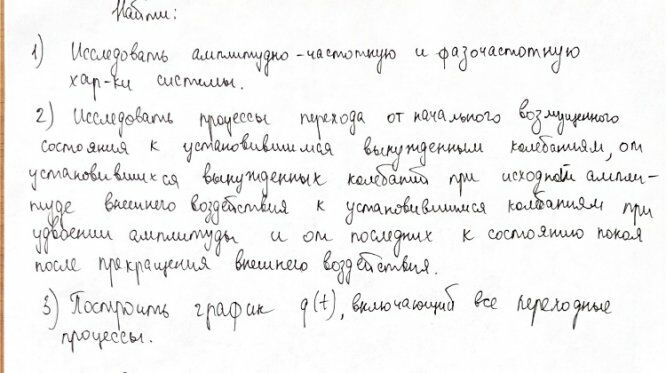 Найти:
1) Исследовать амплитудно-частотную и фазочастотную
хар-ки системы.
2) Исследовать процессы перехода от начального возмущенного
состояния к установившимся вынужденным колебаниям, от
установившихся вынужденных колебаний при исходной ампли-
туде внешнего воздействия к установившимся колебаниям при
удвоении амплитуды и от последних к состоянию покоя
после прекращения внешнего воздействия.
3) Построить график q(t), включающий все переходные
процессы.